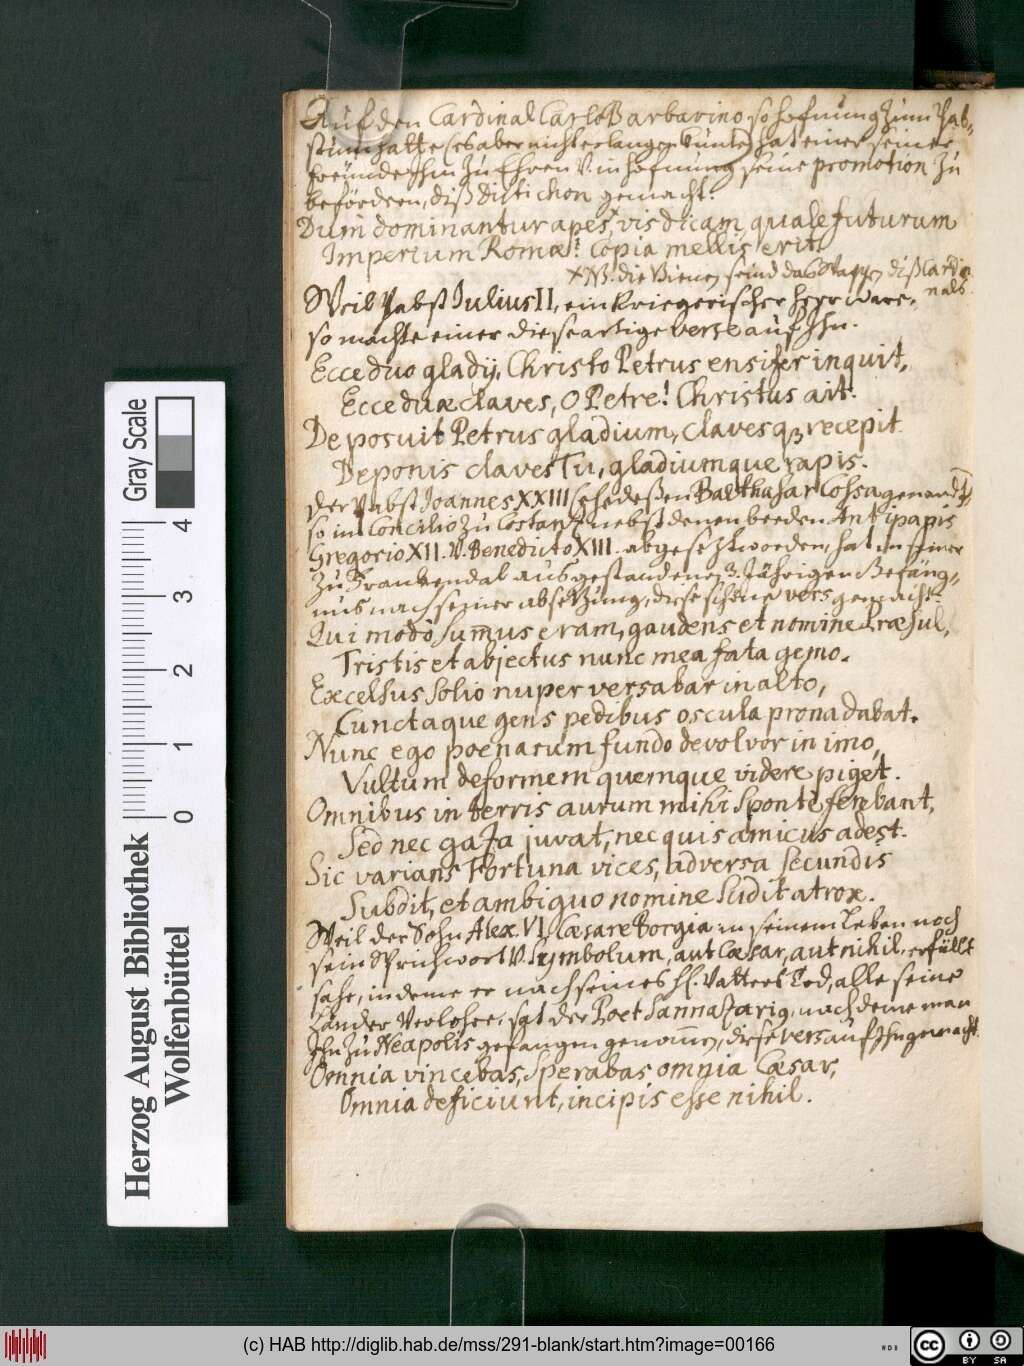 Auf den Cardinal Carlo Barbarino, so hofnung zum Pab-
stum hatte (es aber nicht erlangen kunte) hat einer seiner
freünde Ihm zu Ehren v. in hofnung seine promotion zu
befördern, diß distichon gemacht:
Dum dominantur apes, vis dicam, quale futurum
Imperium Romæ? Copia mellis erit.
+ NB. die Bienen seind das Wappen diß Cardi-
nals.
Weil Pabst Iulius II, ein kriegerischer Herr ware,
so machte einer diese artige verse auf Ihn.
Ecce duo gladij, Christo Petrus ensifer inquit,
Ecce duæ claves, O Petre! Christus ait.
Deposuit Petrus gladium, clavesq3 recepit
Deponis claves Tu, gladiumque rapis.
Der Pabst Joannes XXIII (ehedeßen Balthasar Cossa genandt)
so im Concilio zu Costantz nebst denen beeden Antipapis
Gregorio XII. v. Benedicto XIII. abgesetzt worden, hat in seiner
zu Frankendal ausgestandenen 3. Jährigen Gefäng-
nus nach seiner absetzung, diese schöne vers gemacht:
Qui modò summus eram, gaudens et nomine Præsul,
Tristis et abjectus nunc mea fata gemo.
Excelsus solio nuper versabar in alto,
Cunctaque gens pedibus oscula prona dabat.
Nunc ego poenarum fundo devolvor in imo,
Vultum deformem quemque videre piget.
Omnibus in terris aurum mihi sponte ferebant,
Sed nec gaza juvat, nec quis amicus adest.
Sic varians Fortuna vices, adversa secundis
Subdit, et ambiguo nomine ludit atrox.
Weil der Sohn Alex. VI. Cæsare Borgia in seinem Leben noch
sein Spruchwort v. Symbolum, aut Cæsar, aut nihil, erfüllt
sahe, indeme er nach seines H. Vatters Tod, alle seine
Länder verlohre, hat der Poet Sannazarig, nachdeme man
Ihn zu Neapolis gefangen genomen, diese vers auf Ihn gemacht.
Omnia vincebas, Sperabas omnia Cæsar,
Omnia deficiunt, incipis esse nihil.
Gray Scale
0 1 2 3 4
Herzog August Bibliothek
Wolfenbüttel
(c) HAB http://diglib.hab.de/mss/291-blank/start.htm?image=00166
WDB
cc BY SA